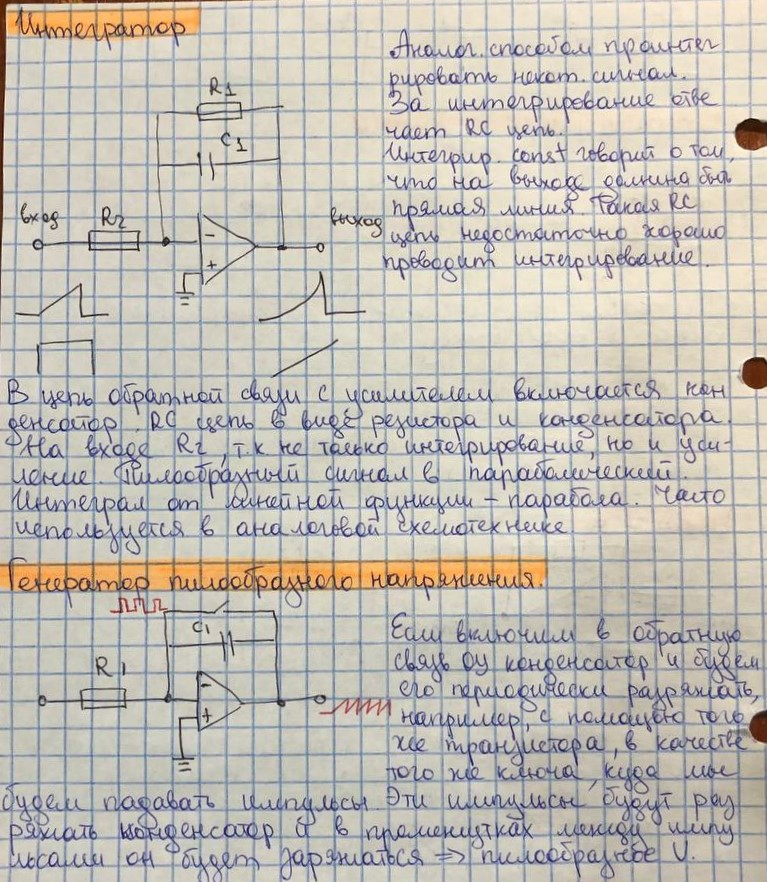 Интегратор
Аналог. способом проинтег
рировать некот. сигнал.
За интегрирование отве
чает RC цепь.
Интегрир. const говорит о том,
что на выходе должна быть
прямая линия. Такая RC
цепь недостаточно хорошо
проводит интегрирование.
R1
C1
вход
R2
выход
-
+
В цепь обратной связи с усилителем включается кон
денсатор. RC цепь в виде резистора и конденсатора.
На входе R2, т.к не только интегрирование, но и уси-
ление. Пилообразный сигнал в параболический.
Интеграл от линейной функции - парабола. Часто
используется в аналоговой схемотехнике
Генератор пилообразного напряжения.
C1
R1
-
+
Если включим в обратную
связь ОУ конденсатор и будем
его периодически разряжать,
например, с помощью того
же транзистора, в качестве
того же ключа, куда мы
будем падавать импульсы. Эти импульсы будут раз
ряжать конденсатор а в промежутках между импу
льсами он будет заряжаться => пилообразное U.